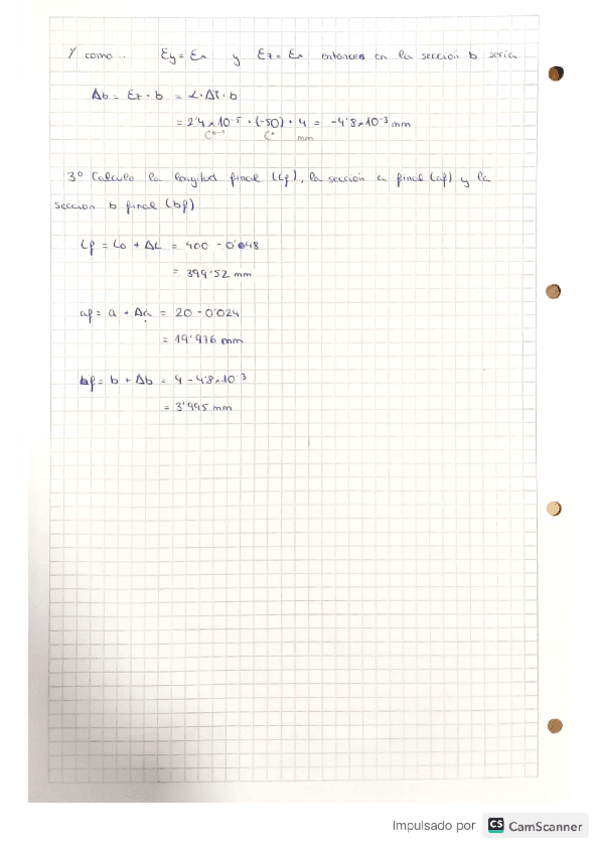 Y como.. Ey = Ex y Ez = Ex entonces en la sección b sería
Δb = Ez · b = α · ΔT · b
= 2'4 x 10⁻⁵ · (-50) · 4 = -4'8 x 10⁻³ mm
Cº⁻¹ Cº mm
3º Calculo la longitud final (Lf), la sección a final (af) y la
sección b final (bf)
Lf = Lo + ΔL = 400 - 0'048
= 399'52 mm
af = a + Δa = 20 - 0'024
= 19'976 mm
bf = b + Δb = 4 - 4'8 x 10⁻³
= 3'995 mm
Impulsado por CS CamScanner